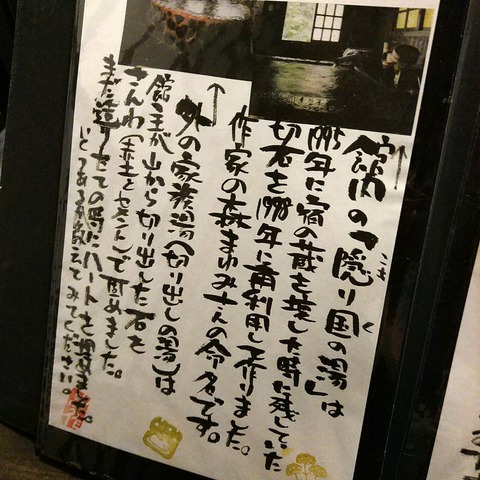 館内の「隠り国の湯」は
こも く
1995年に宿の蔵を壊した時に残していた
切石を1998年に再利用して作りました。
作家の森まゆみさんの命名です。
外の家族湯(切り出しの湯)は
館主が山から切り出した石を
さんわ(赤土とセメント)で固めました。
まだ造りたての時にハートを埋めました。
いくつあるか数えてみてください。